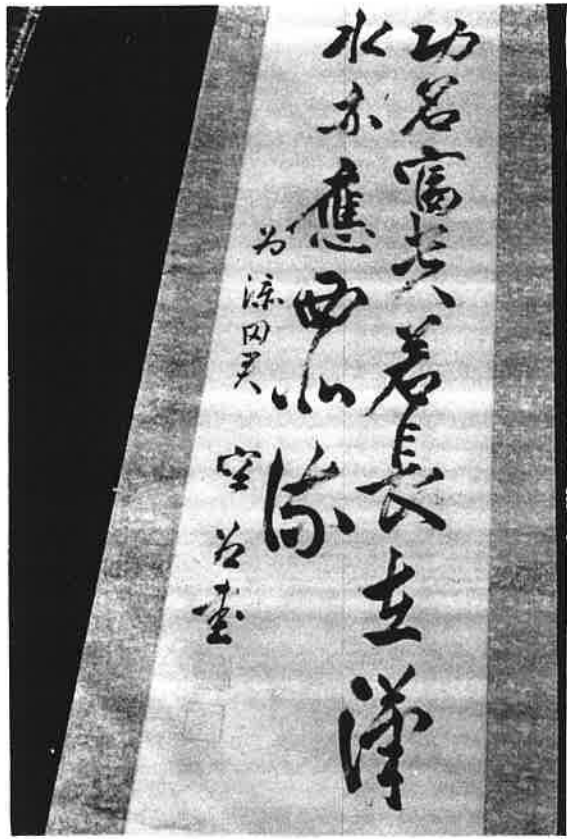 功名富貴若長在漢
水亦應西北流
為田君 空谷書